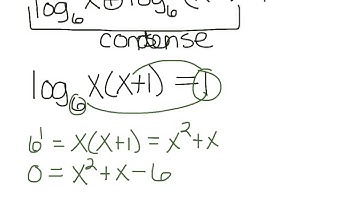 log₆ x + log₆ (x
condense
log₆ x(x+1) = 1
6¹ = x(x+1) = x² + x
0 = x² + x - 6